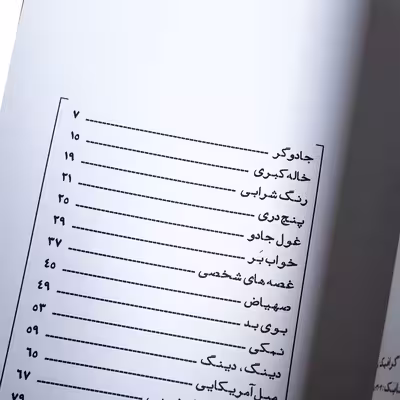 جادوگر ۷
خاله کبری ۱۵
رنگ شرابی ۱۹
پنج دری ۲۱
غول جادو ۲۵
خواب بَر ۲۹
غصه های شخصی ۳۷
صهیاض ۴۵
بوی بد ۴۹
نمکی ۵۳
دینگ، دینگ ۵۹
مبل آمریکایی ۶۵
۶۷
۷۹